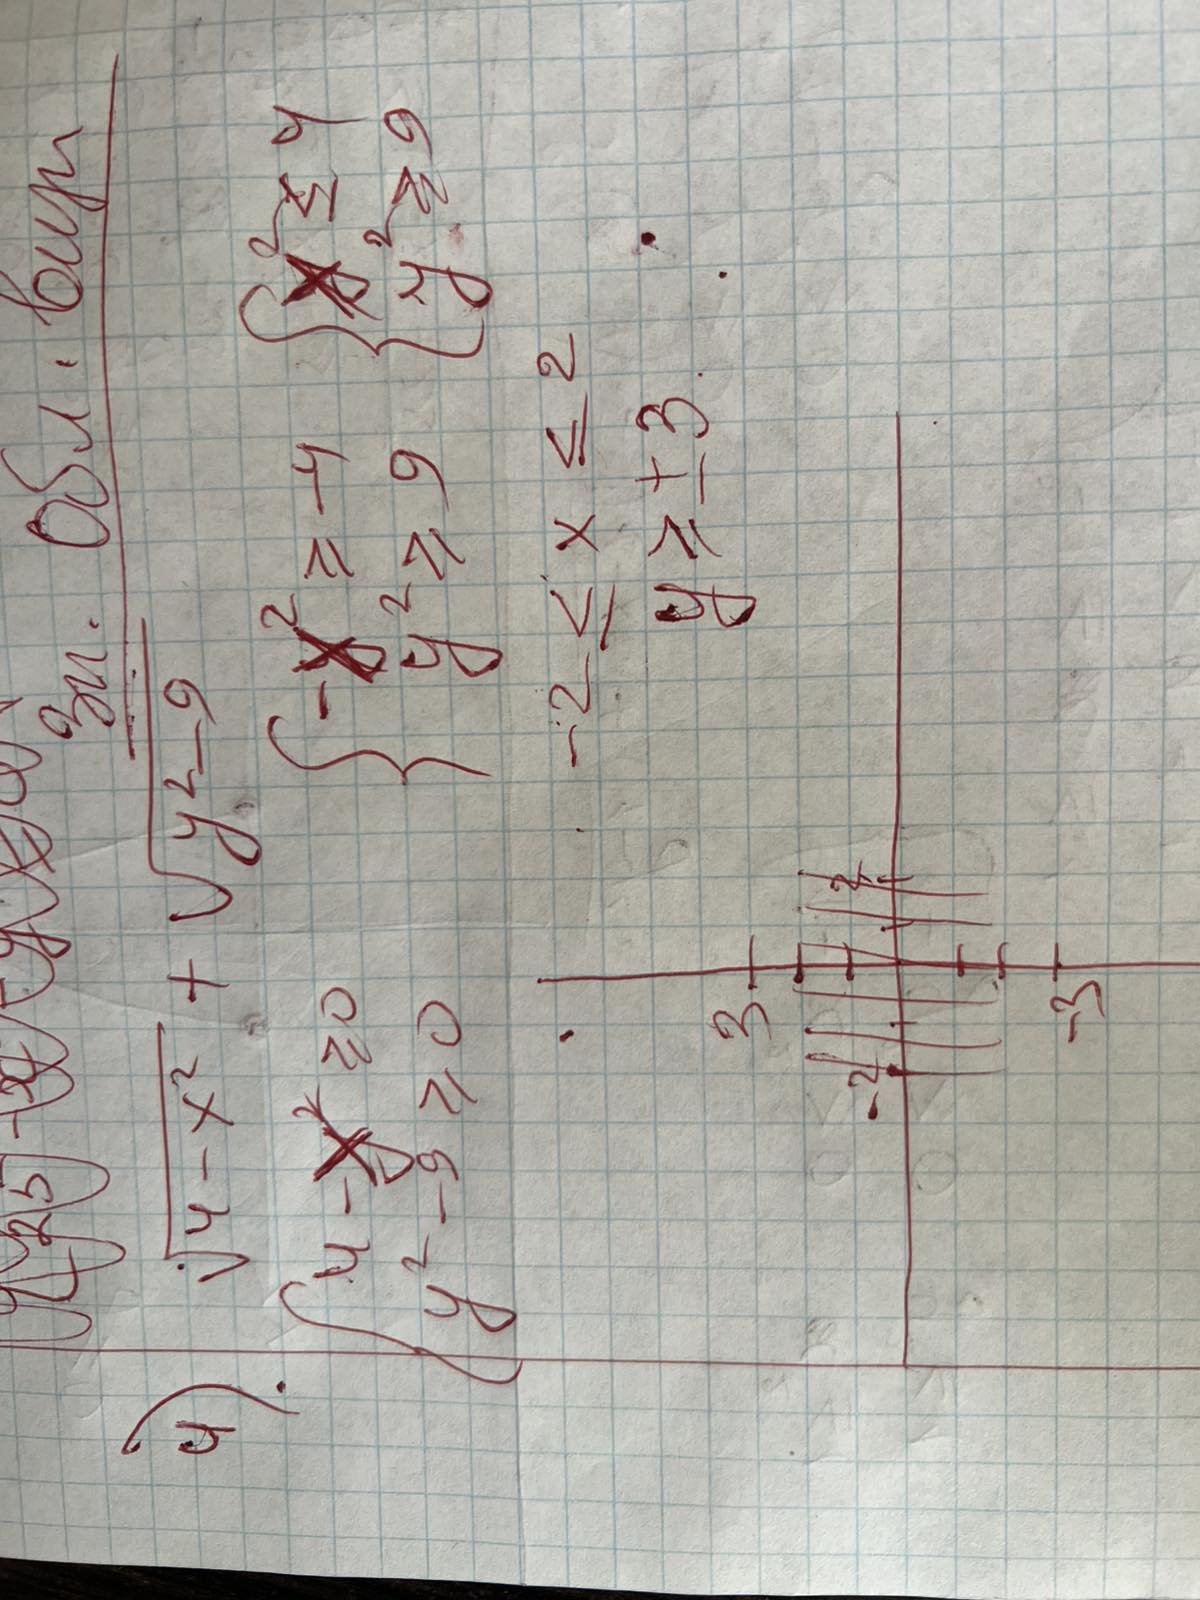 Зн. Обл. вир
4). √4-x² + √y²-9
{4-x² ≥ 0 {-x² ≥ -4 {x² ≤ 4
y²-9 ≥ 0 y² ≥ 9 y² ≥ 9
-2 ≤ x ≤ 2
y ≥ ±3
3
-2 2
-3